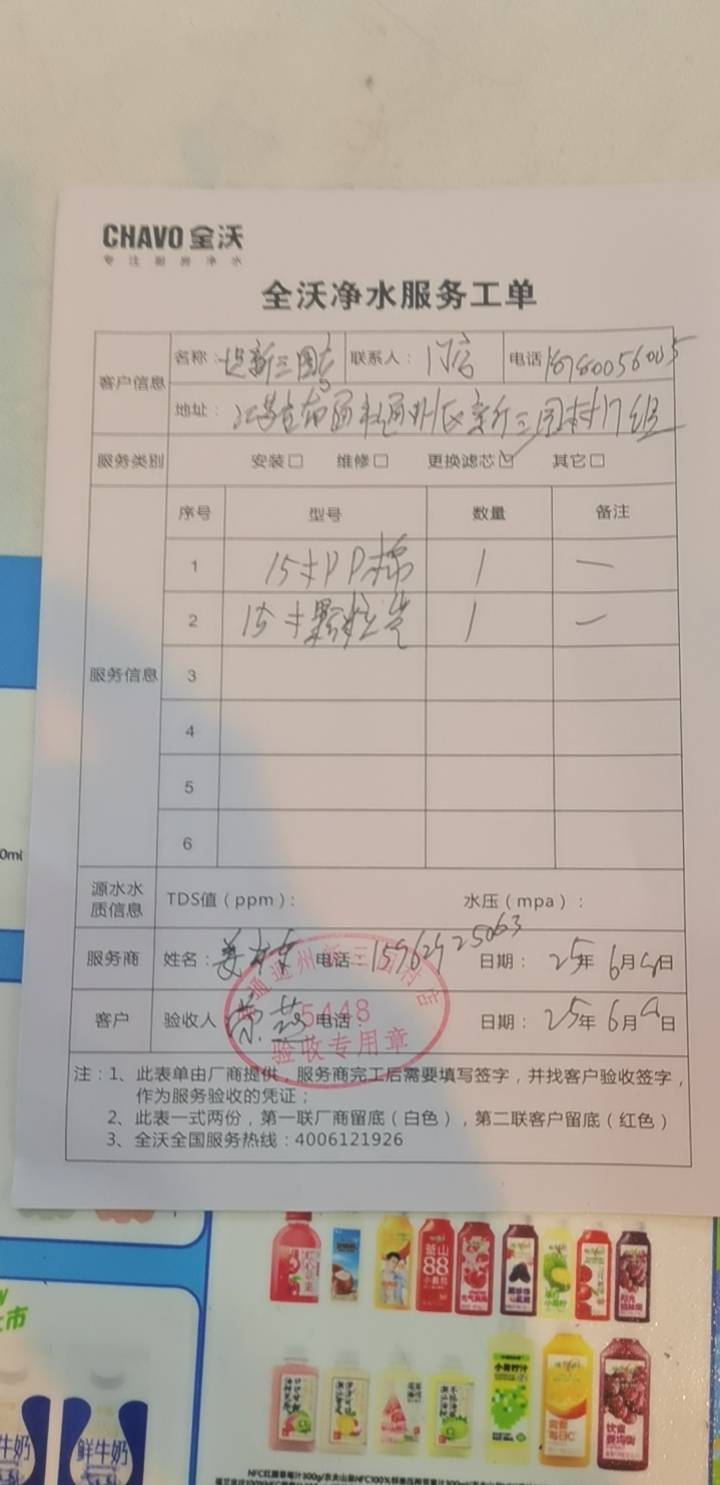 CHAVO 全沃
专注厨房净水
全沃净水服务工单
客户信息
名称: 新三园店 联系人: 门店 电话
地址: 江苏省南通市通州区新三园村17组
服务类别 安装□ 维修□ 更换滤芯☑ 其它□
服务信息
序号 型号 数量 备注
1 15寸PP棉 1 —
2 15寸颗粒炭 1 —
3
4
5
6
源水水质信息 TDS值(ppm): 水压(mpa):
服务商 姓名: 电话: 15962925063 日期: 25年6月9日
客户 验收人 电话: 日期: 25年6月9日
通州新三园村店
5448
验收专用章
注:1、此表单由厂商提供,服务商完工后需要填写签字,并找客户验收签字,
作为服务验收的凭证;
2、此表一式两份,第一联厂商留底(白色),第二联客户留底(红色)
3、全沃全国服务热线:4006121926
0ml
上市
釜山
88
小青柠汁
每日C
牛奶
鲜牛奶